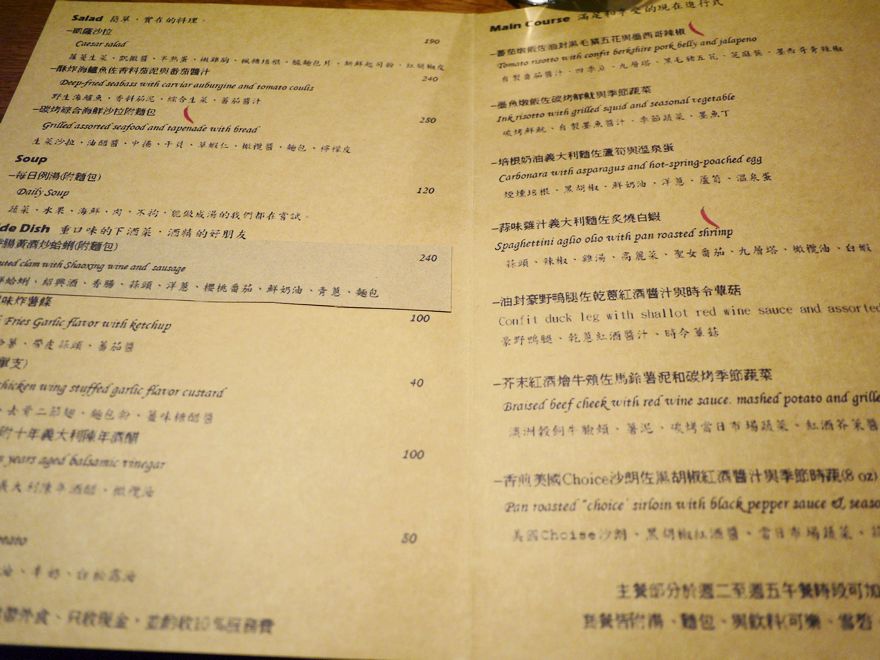 Salad 簡單，實在的料理。
–凱薩沙拉 190
Caesar salad
蘿蔓生菜、凱撒醬、半熟蛋、嫩雞胸、楓糖培根、脆麵包片、新鮮起司粉、紅胡椒粒
–酥炸海鱸魚佐香料茄泥與番茄醬汁 240
Deep-fried seabass with carviar auburgine and tomato coulis
野生海鱸魚、香料茄泥、綜合生菜、蕃茄醬汁
–碳烤綜合海鮮沙拉附麵包 280
Grilled assorted seafood and tapenade with bread
生菜沙拉、油醋醬、中捲、干貝、草蝦仁、橄欖醬、麵包、檸檬皮
Soup
–每日例湯(附麵包) 120
Daily Soup
蔬菜、水果、海鮮、肉、不拘，能做成湯的我們都在嘗試。
de Dish 重口味的下酒菜，酒精的好朋友
腸黃酒炒蛤蜊(附麵包) 240
uted clam with Shaoxing wine and sausage
鮮蛤蜊、紹興酒、香腸、蒜頭、洋蔥、櫻桃番茄、鮮奶油、青蔥、麵包
味炸薯條 100
Fries Garlic flavor with ketchup
薯、帶皮蒜頭、蕃茄醬
單支) 40
chicken wing stuffed garlic flavor custard
、去骨二節翅、麵包粉、薑味糖醋醬
附十年義大利陳年酒醋 100
years aged balsamic vinegar
義大利陳年酒醋、橄欖油
50
油、牛奶、白松露油
帶外食、只收現金，並酌收10%服務費
Main Course 滿足和享受的現在進行式
–蕃茄燉飯佐油封黑毛豬五花與墨西哥辣椒
Tomato risotto with confit berkshire pork belly and jalapeno
自製番茄醬汁、四季豆、九層塔、黑毛豬五花、芝麻葉、墨西哥青辣椒
–墨魚燉飯佐碳烤鮮魷與季節蔬菜
Ink risotto with grilled squid and seasonal vegetable
碳烤鮮魷、自製墨魚醬汁、季節蔬菜、墨魚丁
–培根奶油義大利麵佐蘆筍與溫泉蛋
Carbonara with asparagus and hot-spring-poached egg
煙燻培根、黑胡椒、鮮奶油、洋蔥、蘆筍、溫泉蛋
–蒜味雞汁義大利麵佐炙燒白蝦
Spaghettini aglio olio with pan roasted shrimp
蒜頭、辣椒、雞湯、高麗菜、聖女番茄、九層塔、橄欖油、白蝦
–油封豪野鴨腿佐乾蔥紅酒醬汁與時令蕈菇
Confit duck leg with shallot red wine sauce and assorted
豪野鴨腿、乾蔥紅酒醬汁、時令蕈菇
–芥末紅酒燴牛頰佐馬鈴薯泥和碳烤季節蔬菜
Braised beef cheek with red wine sauce. mashed potato and grille
澳洲穀飼牛臉頰、薯泥、碳烤當日市場蔬菜、紅酒芥菜醬
–香煎美國Choice沙朗佐黑胡椒紅酒醬汁與季節時蔬(8 oz)
Pan roasted "choice" sirloin with black pepper sauce & seaso
美國Choise沙朗、黑胡椒紅酒醬、當日市場蔬菜、蒜
主餐部分於週二至週五午餐時段可加
套餐皆附湯、麵包、與飲料(可樂、雪碧、